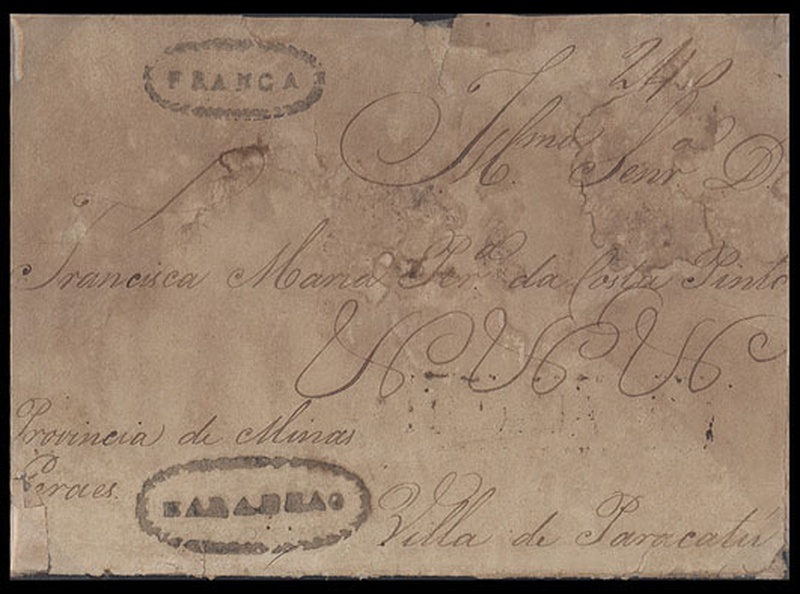 FRANCA
240
Illma Senrª D.
Francisca Maria Per.ª da Costa Pinto
Provincia de Minas
Geraes.
MARANHAO
Villa de Paracatú